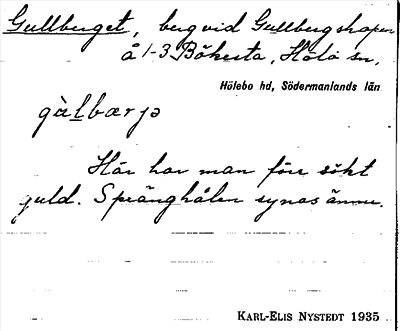 Gullberget, berg vid Gullbergshagen
å 1-3 Bökesta, Hölö sn,
Hölebo hd, Södermanlands län
gùlbærjə
Här har man förr sökt
guld. Spränghålen synas ännu.
KARL-ELIS NYSTEDT 1935